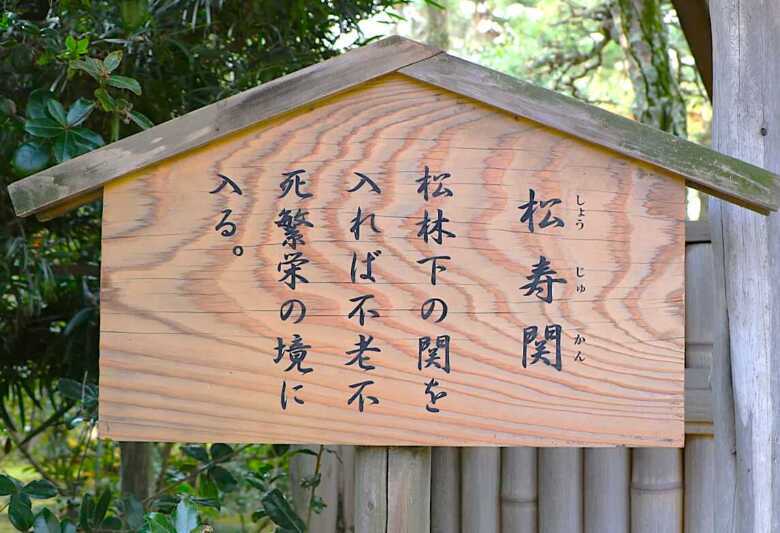 松寿関
しょうじゅかん
松林下の関を
入れば不老不
死繁栄の境に
入る。